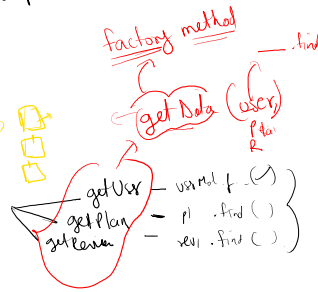 factory method
___.find
getData (user,
P
R
getUssr — .f. ( )
getPlan — pl .find ( )
getRevien — revi .find ( )